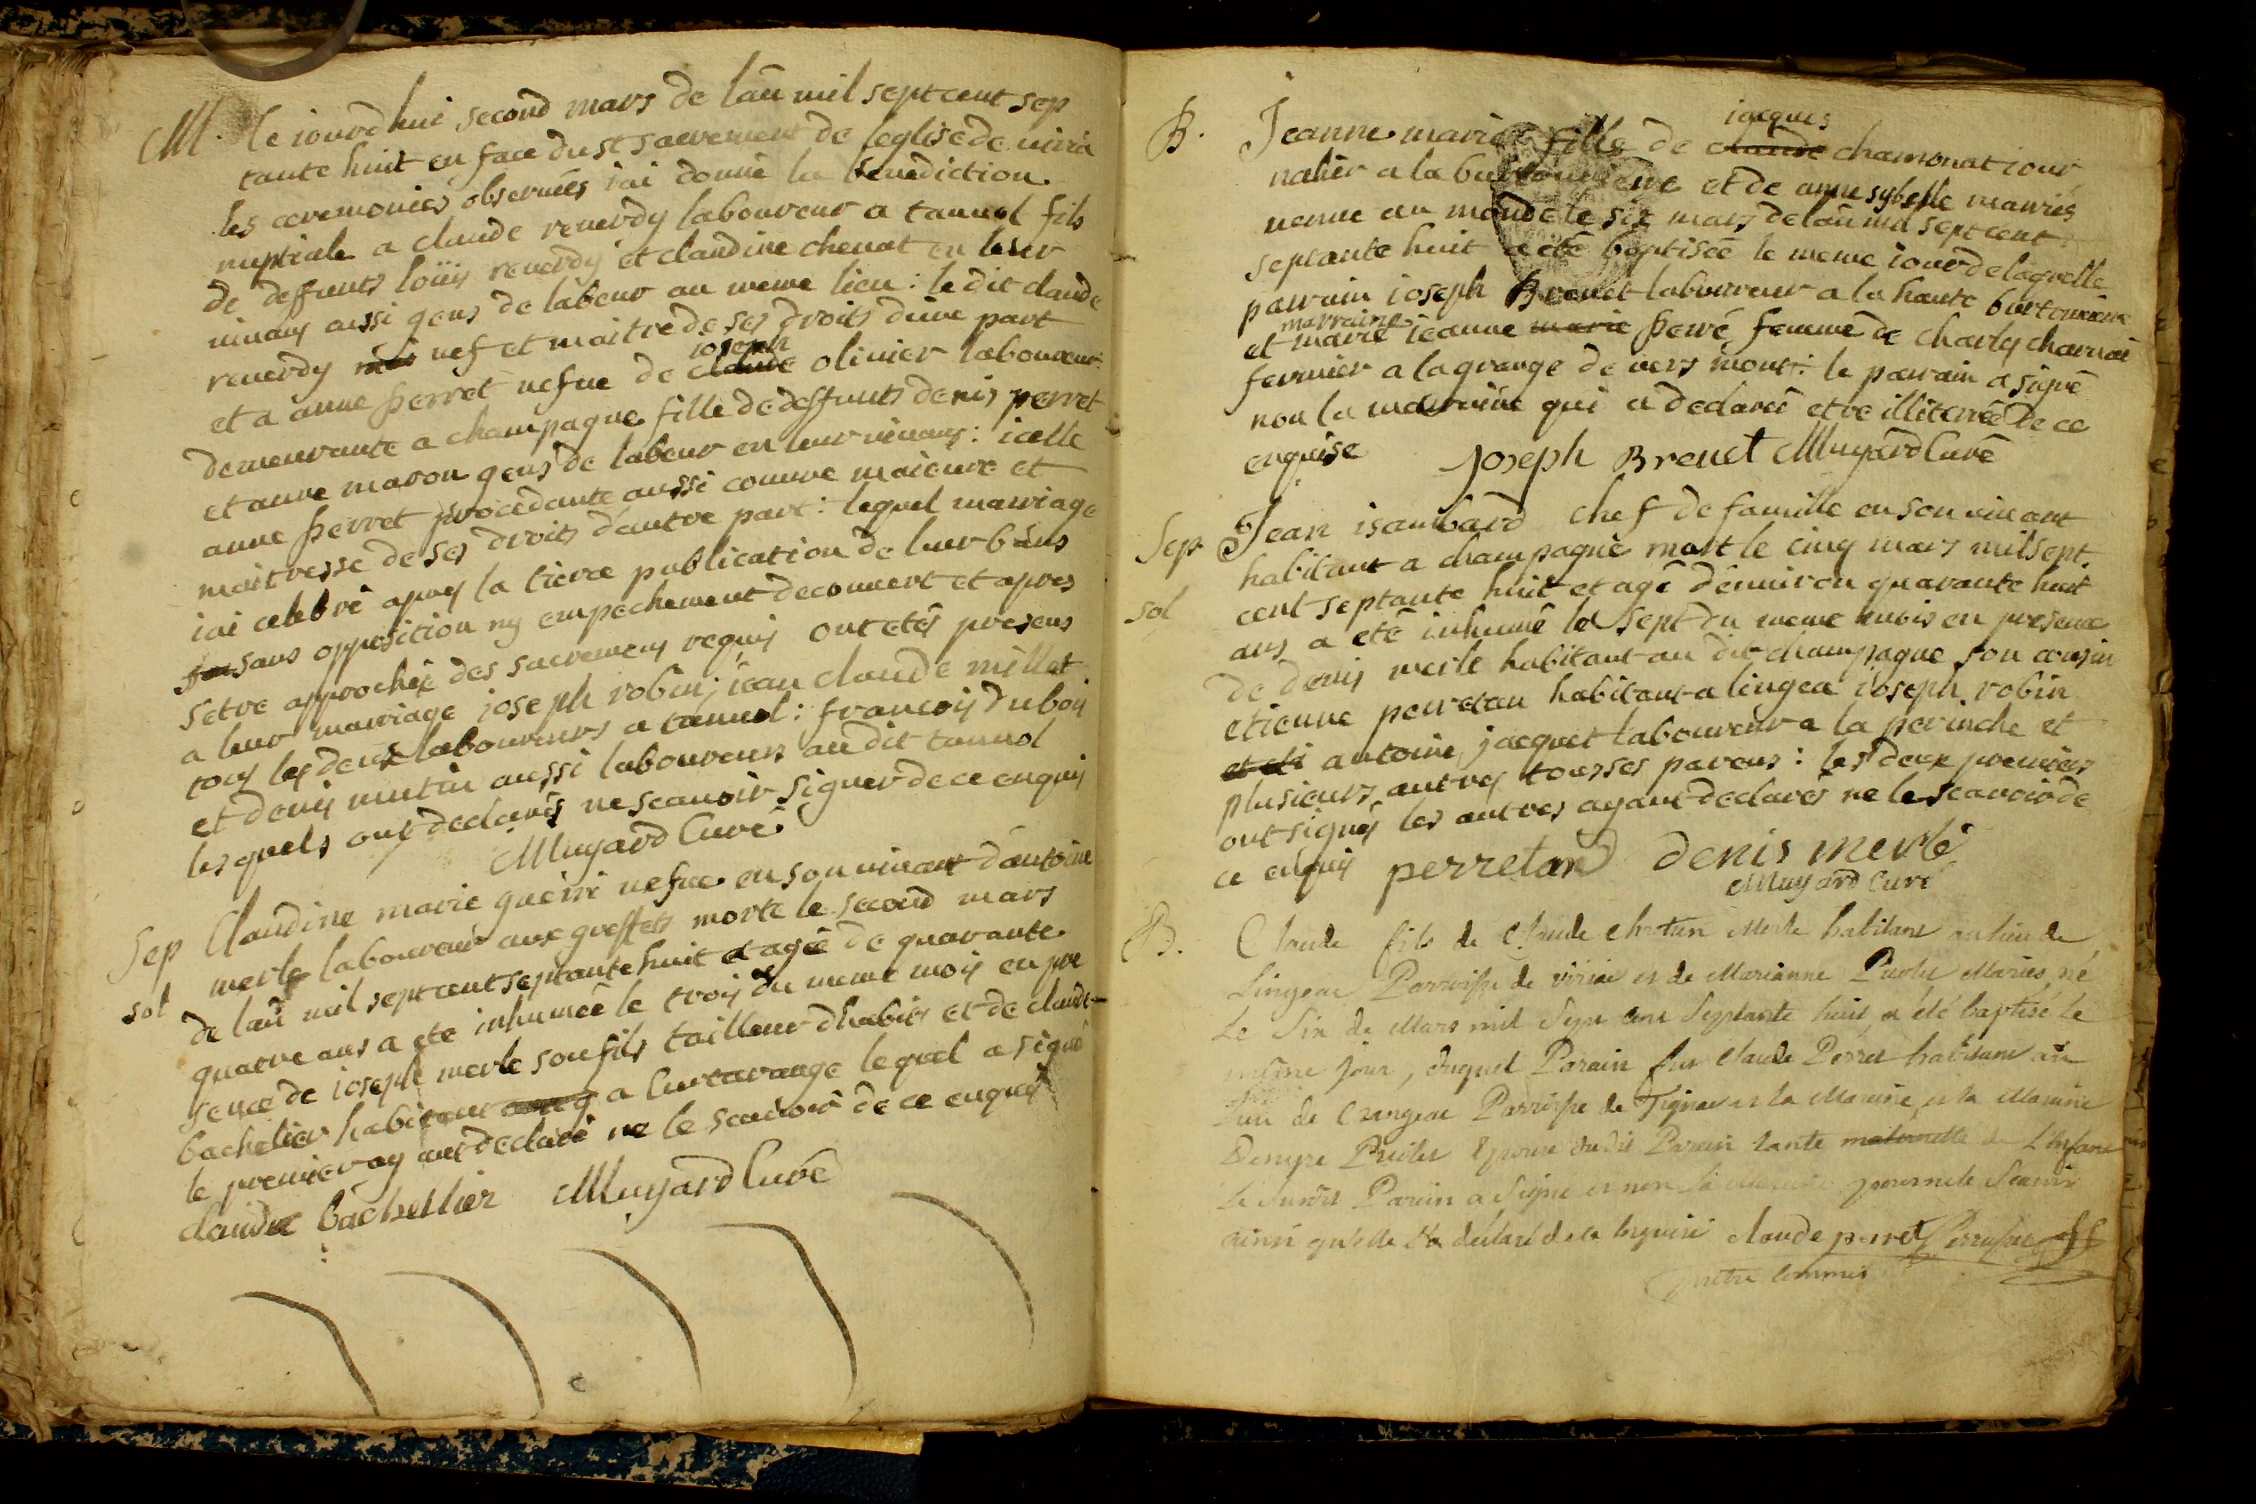 M. le iourdhui second mars de lañ mil sept cent sep
tante huit en face du st sacrement de leglise de viria
les ceremonies observées iai donné la bénédiction
nuptiale a claude reverdy laboureur a tannol fils
de deffunts loüis reverdy et claudine chenat en leur
vivans aussi gens de labeur au meme lieu : le dit claude
reverdy nef et maitre de ses droits dune part
et a anne perret nefve de claude joseph olivier laboureur
demeurante a champagne fille de deffunts denis perret
et anne maron gens de labeur en leur vivans : icelle
anne perret procédante aussi comme maieure et
maitresse de ses droits dautre part : lequel marriage
iai celebré apres la tierce publication de leur bans
sans opposition ny empechement decouvert et apres
setre approchés des sacremens requis ont etés presens
a leur marriage joseph robin, iean claude millet
tous les deux laboureurs a tannol : francois dubois
et denis mutin aussi laboureurs audit tannol
lesquels ont declarés ne scauoir signer de ce enquis
Muyard Curé
Sep Claudine marie guérin nefve en son vivant dantoine
merle laboureur aux greffets morte le second mars
sol de lañ mil sept cent septante huit et agée de quarante
quatre ans a eté inhumée le trois du meme mois en pre
sence de ioseph merle son fils tailleur dhabits et de claude
bachelier habitant a curtarange lequel a signé
le premier ayant declaré ne le scavoir de ce enquis
claude bachellier Muyard Curé
B. Jeanne marie fille de claude jacques chamonat iour
nalier a la et de anne sybelle mariés
venue au monde le six mars de lañ mil sept cent
septante huit a été baptisée le meme iour de laquelle
parrain ioseph Brevet laboureur a la haute
et marie marraine ieanne marie perré femme de charly charnai
fermier a la grange de vers mont : le parrain a signé
non la marraine qui a declaré etre illiterée de ce
enquise Joseph Brevet Muyard Curé
Sep Jean isambard chef de famille en son vivant
habitant a champagne mort le cinq mars mil sept
sol cent septante huit et agé denviron quarante huit
ans a eté inhumé le sept du meme mois en presence
de denis merle habitant au dit champagne son cousin
etienne perretan habitant a lingea ioseph robin
et antoine jacquet laboureur a la perinche et
plusieurs autres tous ses parens : les deux premiers
ont signés les autres ayant declarés ne le scavoir de
ce enquis perretan denis merle
Muyard Curé
B. Claude fils de Claude Merle habitant au lieu de
Lingeac Parroisse de viriac et de Marianne Maries, né
Le Six de Mars mil Sept cent Septante huit a été baptisé le
même jour, duquel Parain fut Claude Perret habitant au
de Crangeac Parroisse de et la Maraine et la Maraine
Denyse epouse dudit Parain tante maternelle de L'enfant
Le Susdit Parain a Signé et non la maraine pour ne le Scavoir
ainsi qu'elle l'a déclaré de ce enquise claude perret
prêtre commis